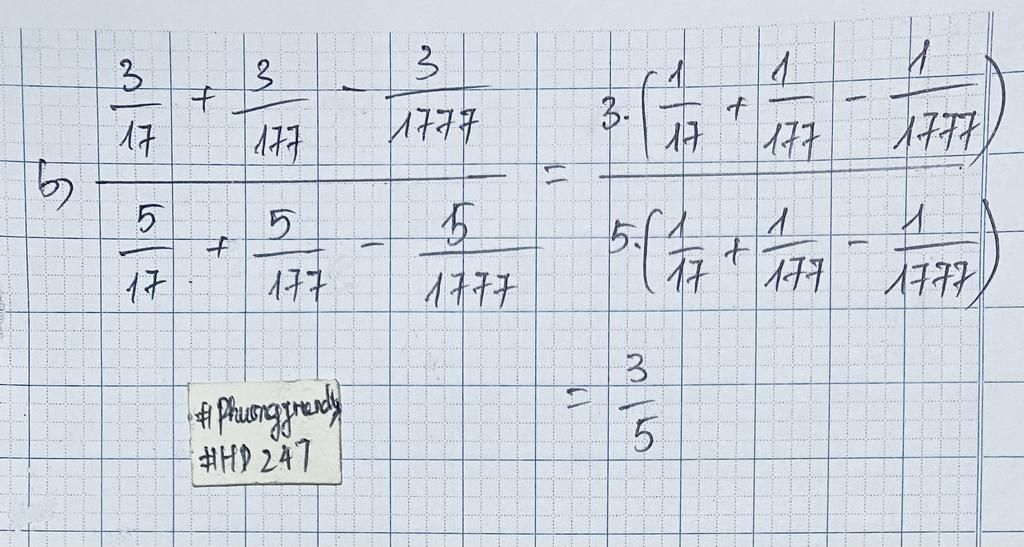 b) \frac{\frac{3}{17} + \frac{3}{177} - \frac{3}{1777}}{\frac{5}{17} + \frac{5}{177} - \frac{5}{1777}} = \frac{3.\left(\frac{1}{17} + \frac{1}{177} - \frac{1}{1777}\right)}{5.\left(\frac{1}{17} + \frac{1}{177} - \frac{1}{1777}\right)}
= \frac{3}{5}
#HD247